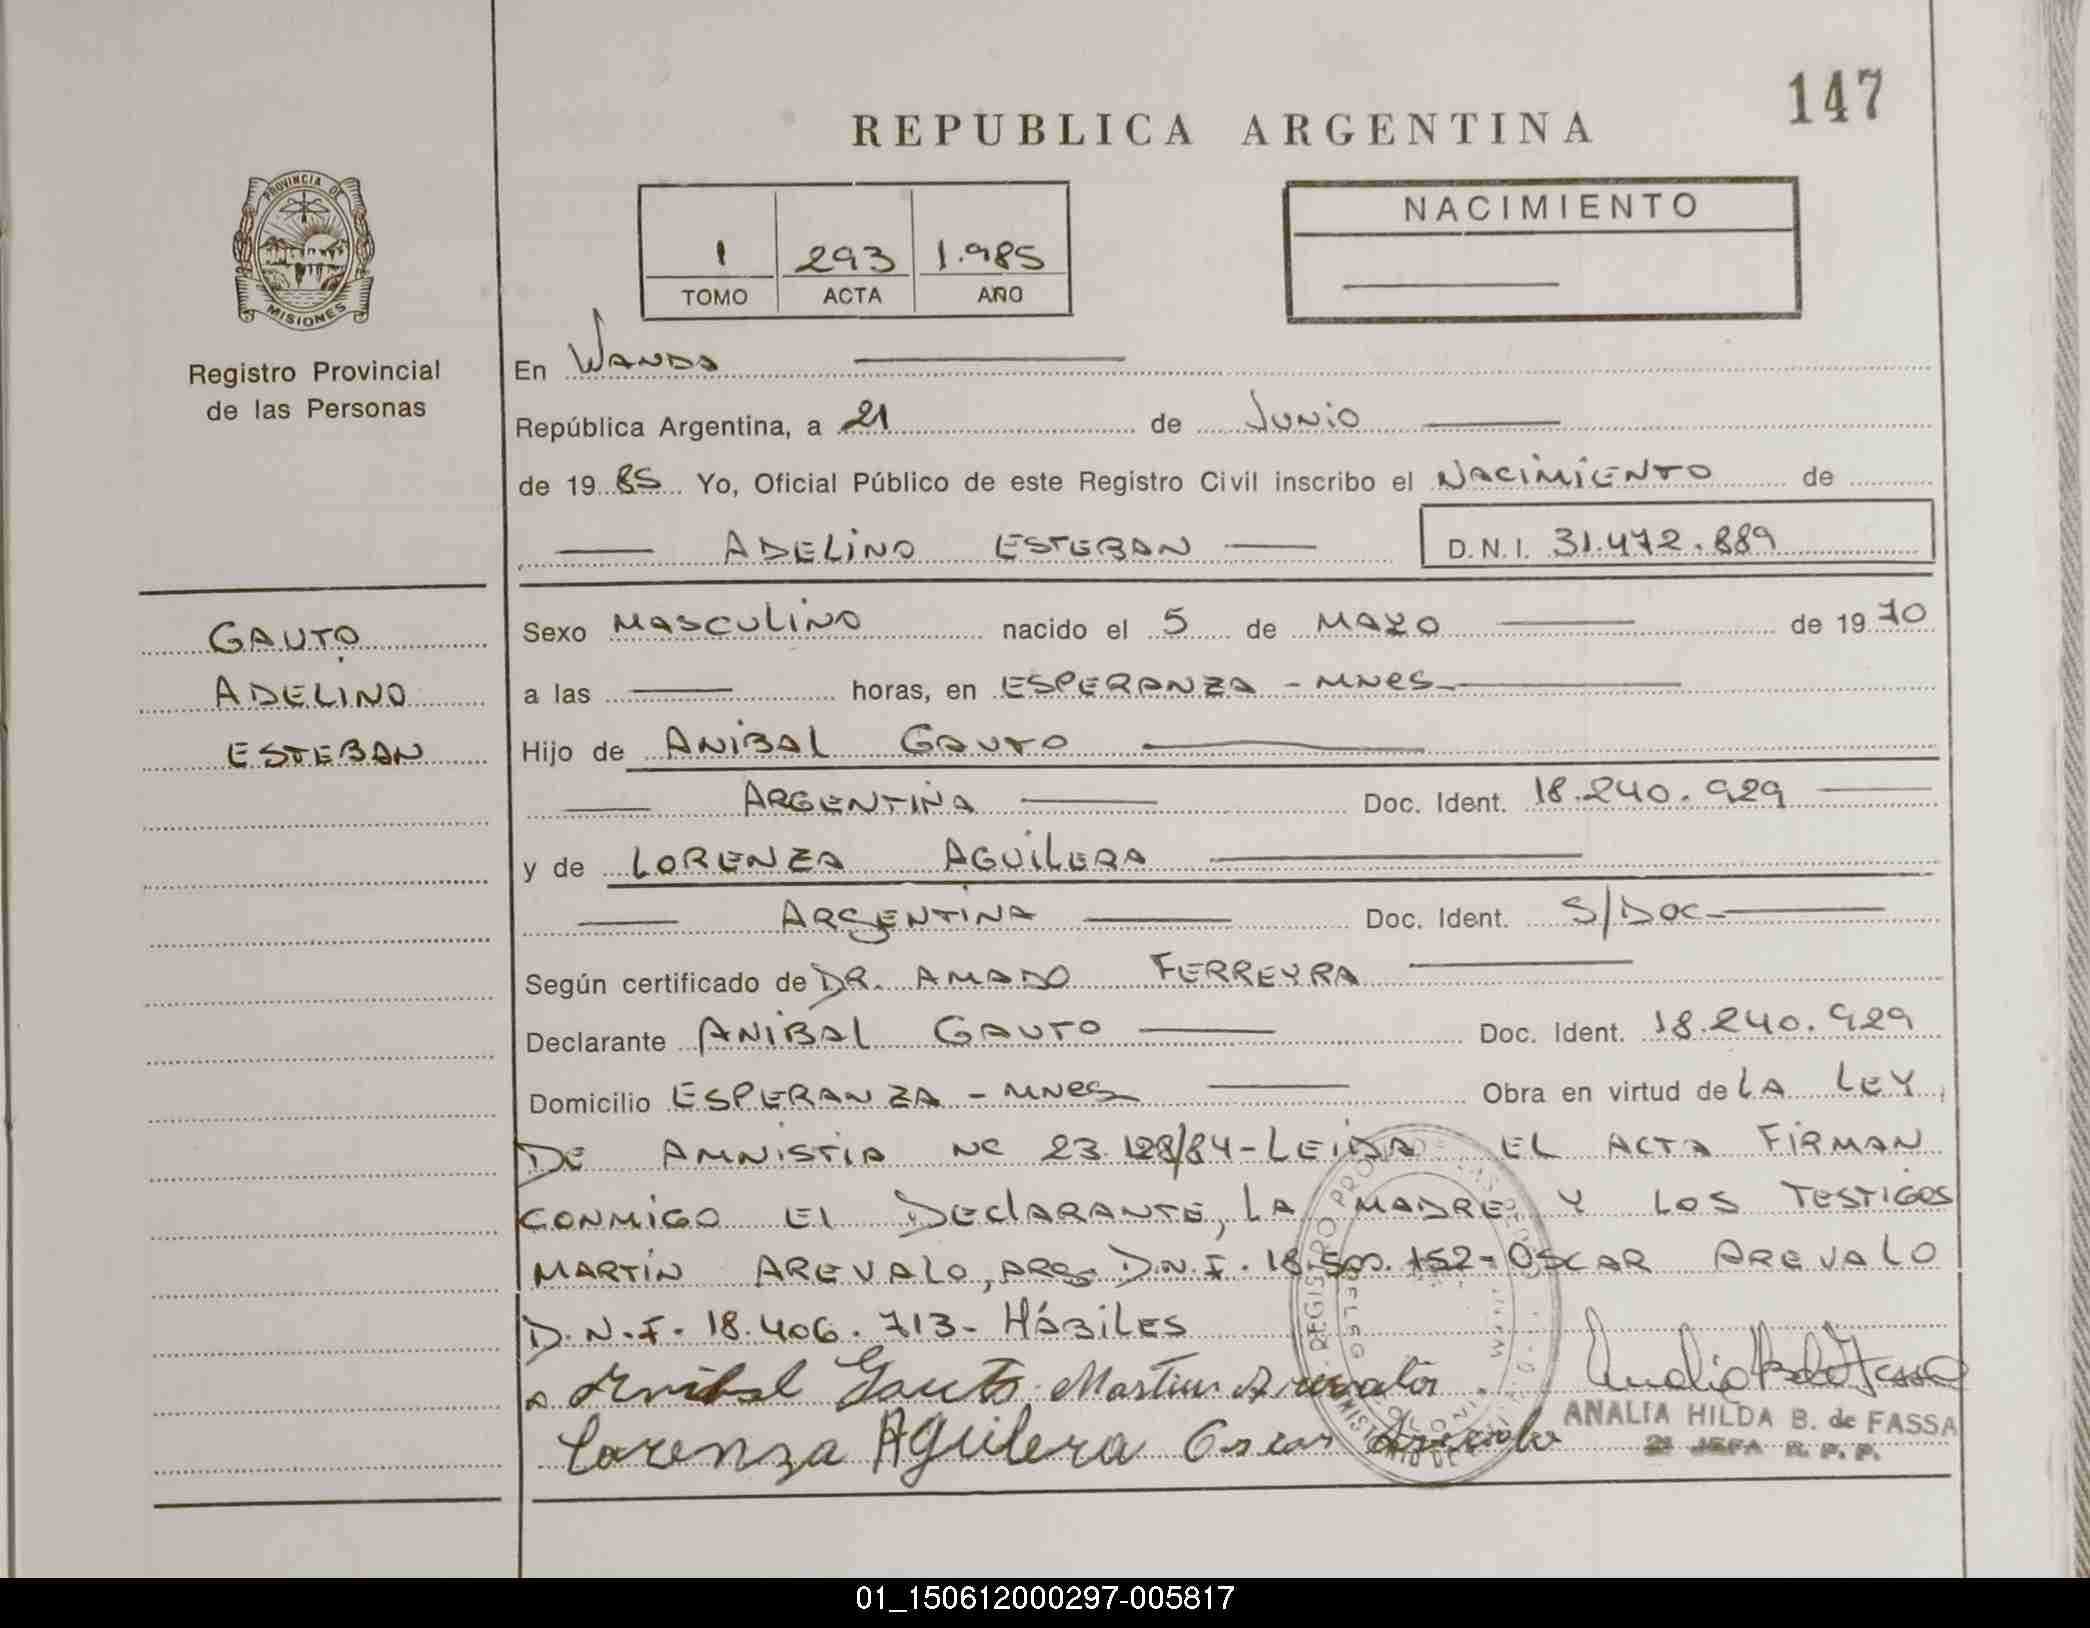 147
REPUBLICA ARGENTINA
PROVINCIA DE
MISIONES
1 293 1.985
TOMO ACTA AÑO
NACIMIENTO
Registro Provincial
de las Personas
En WANDA
República Argentina, a 21 de JUNIO
de 19 85 Yo, Oficial Público de este Registro Civil inscribo el NACIMIENTO de
ADELINO ESTEBAN D.N.I. 31.472.889
GAUTO
ADELINO
ESTEBAN
Sexo MASCULINO nacido el 5 de MAYO de 19 70
a las horas, en ESPERANZA - MNES-
Hijo de ANIBAL GAUTO
ARGENTINA Doc. Ident. 18.240.929
y de LORENZA AGUILERA
ARGENTINA Doc. Ident. S/DOC-
Según certificado de DR. AMADO FERREYRA
Declarante ANIBAL GAUTO Doc. Ident. 18.240.929
Domicilio ESPERANZA - MNES Obra en virtud de LA LEY
DE AMNISTIA Nº 23.128/84-LEIDA EL ACTA FIRMAN
CONMIGO EL DECLARANTE, LA MADRE Y LOS TESTIGOS
MARTIN AREVALO, ARG. D.N.I. OSCAR AREVALO
D.N.I. 18.406.713- HÁBILES
Anibal Gauto Martin Arevalo
Lorenza Aguilera Oscar Arevalo
ANALIA HILDA B. de FASSA
JEFA R. P. P.
01_150612000297-005817